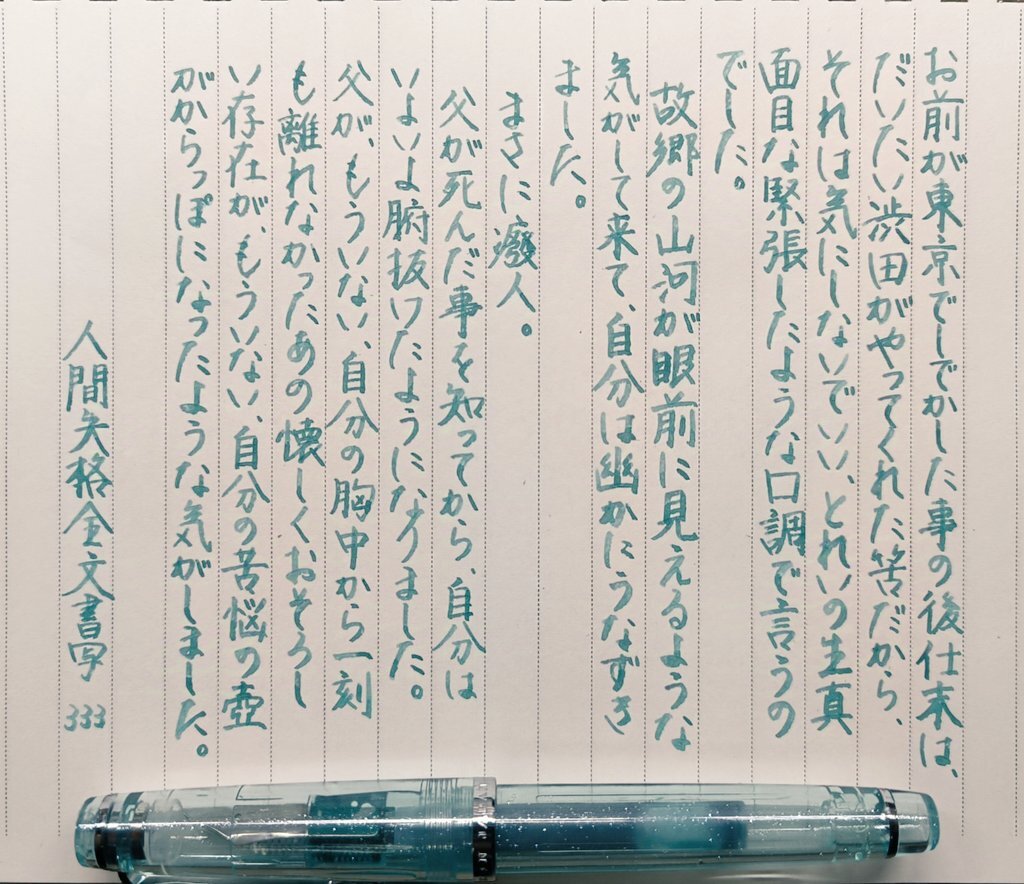 お前が東京でしでかした事の後仕末は、
だいたい渋田がやってくれた筈だから、
それは気にしないでいい、とれいの生真
面目な緊張したような口調で言うの
でした。
故郷の山河が眼前に見えるような
気がして来て、自分は幽かにうなずき
ました。
まさに癈人。
父が死んだ事を知ってから、自分は
いよいよ腑抜けたようになりました。
父が、もういない、自分の胸中から一刻
も離れなかったあの懐しくおそろし
い存在が、もういない、自分の苦悩の壺
がからっぽになったような気がしました。
人間失格全文書写 333